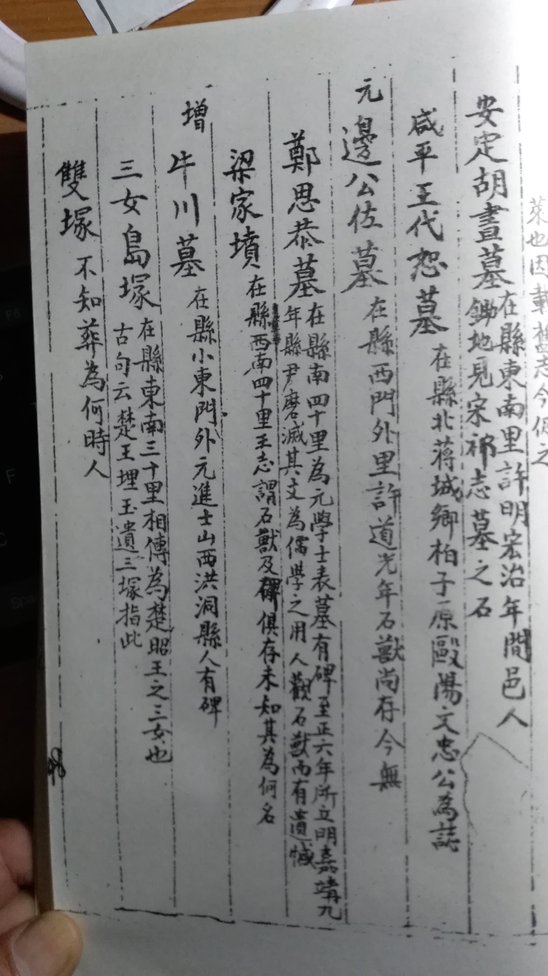 葉也因載舊志今仍之
安定胡晝墓在縣東南里許明宏治年間邑人
鋤地見宋祁志墓之石
咸平王代恕墓在縣北蔣城鄉柏子原毆陽文忠公為誌
元邊公佐墓在縣西門外里許道光年石獸尚存今無
鄭思恭墓在縣南四十里為元學士表墓有碑至正六年所立明嘉靖九
年縣尹磨滅其文為儒學之用人觀石獸而有遺憾
梁家墳在縣西南四十里王志謂石獸及碑俱存未知其為何名
增牛川墓在縣小東門外元進士山西洪洞縣人有碑
三女島塚在縣東南三十里相傳為楚昭王之三女也
古句云楚王埋玉遺三塚指此
雙塚不知葬為何時人